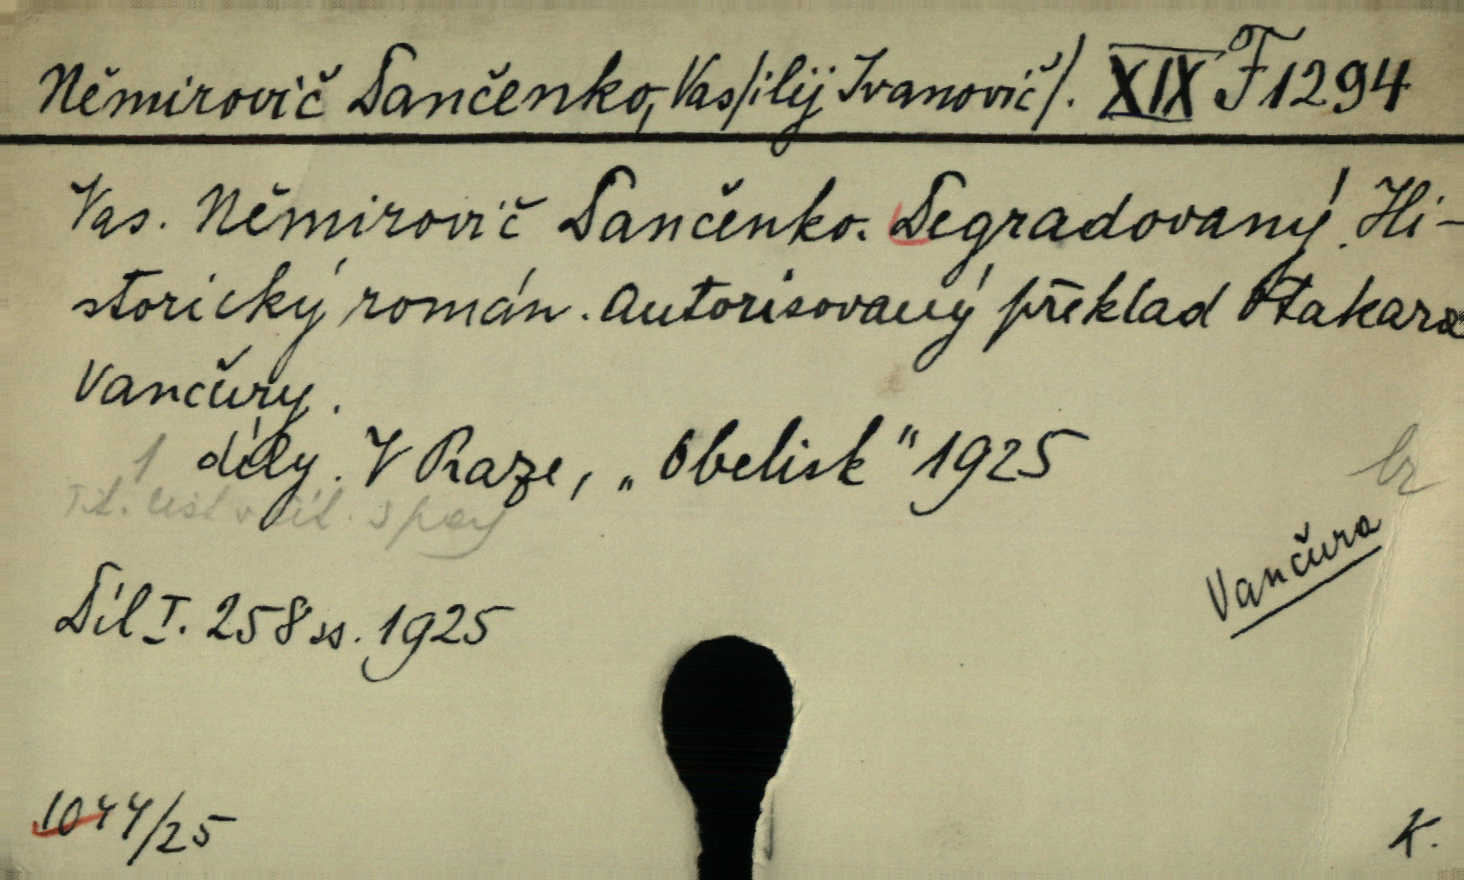 Němirovič Dančenko, Vas/ilij Ivanovič/. XIX F 1294
Vas. Němirovič Dančenko. Degradovaný. Hi-
storický román. Autorisovaný překlad Otakara
Vančury.
1 díly. V Praze, „Obelisk" 1925
Tit. list
Vančura
Díl I. 258 ss. 1925
1044/25
K.